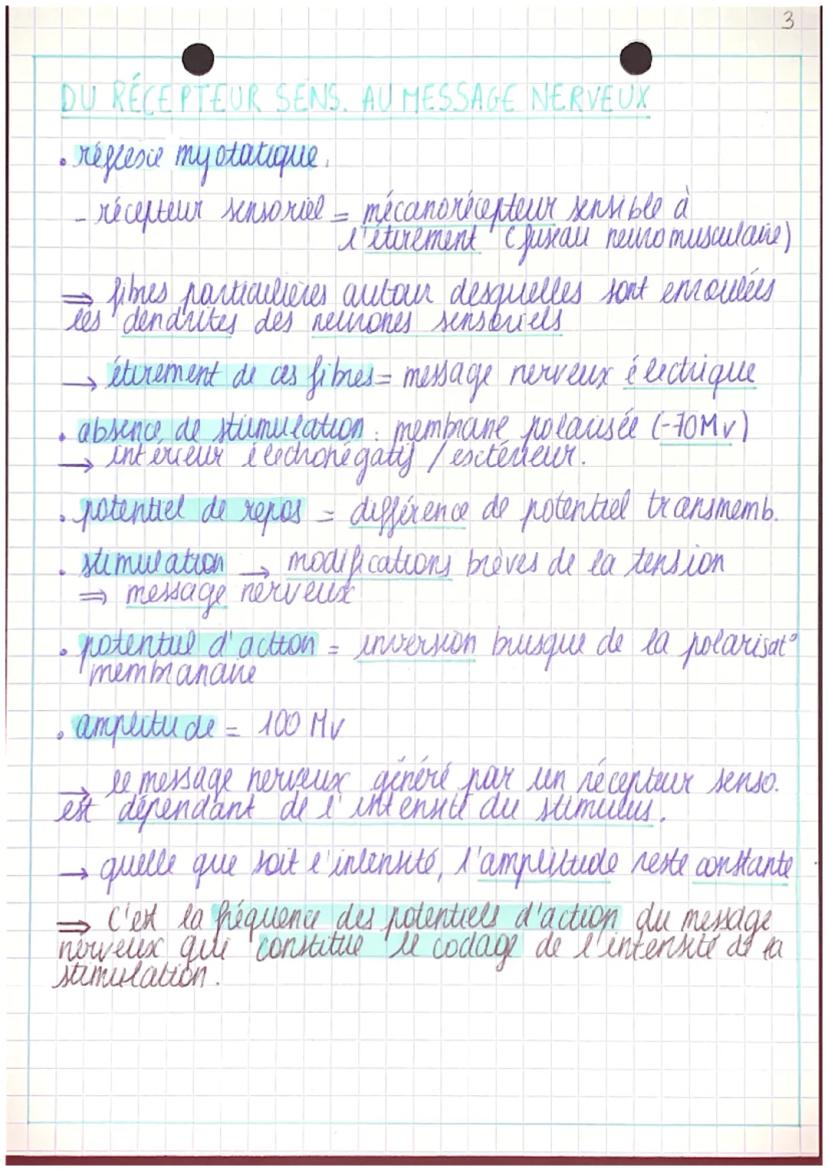 3
DU RÉCEPTEUR SENS. AU MESSAGE NERVEUX
• réflexe myotatique.
- récepteur sensoriel = mécanorécepteur sensible à
l'étirement (fuseau neuromusculaire)
⇒ fibres particulières autour desquelles sont enroulées
les dendrites des neurones sensoriels
→ étirement de ces fibres = message nerveux électrique
• absence de stimulation : membrane polarisée (-70Mv)
→ intérieur électronégatif / extérieur.
• potentiel de repos = différence de potentiel transmemb.
• stimulation → modifications brèves de la tension
⇒ message nerveux
• potentiel d'action = inversion brusque de la polarisat°
membranaire
• amplitude = 100 Mv
→ le message nerveux généré par un récepteur senso.
est dépendant de l'intensité du stimulus.
→ quelle que soit l'intensité, l'amplitude reste constante
⇒ c'est la fréquence des potentiels d'action du message
nerveux qui constitue le codage de l'intensité de la
stimulation.